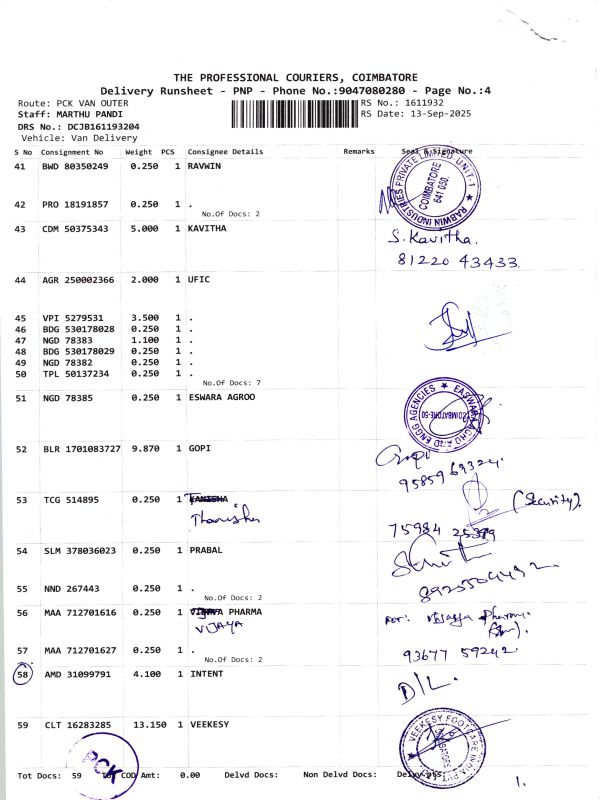 THE PROFESSIONAL COURIERS, COIMBATORE
Delivery Runsheet - PNP - Phone No.:9047080280 - Page No.:4
Route: PCK VAN OUTER
RS No.: 1611932
Staff: MARTHU PANDI
RS Date: 13-Sep-2025
DRS No.: DCJB161193204
Vehicle: Van Delivery
S No Consignment No Weight PCS Consignee Details Remarks Seal & Signature
41 BWD 80350249 0.250 1 RAVWIN
RABWIN INDUSTRIES PRIVATE LIMITED UNIT-1
COIMBATORE
641 050.
42 PRO 18191857 0.250 1 .
No.Of Docs: 2
43 CDM 50375343 5.000 1 KAVITHA
S. Kavitha.
81220 43433.
44 AGR 250002366 2.000 1 UFIC
45 VPI 5279531 3.500 1 .
46 BDG 530178028 0.250 1 .
47 NGD 78383 1.100 1 .
48 BDG 530178029 0.250 1 .
49 NGD 78382 0.250 1 .
50 TPL 50137234 0.250 1 .
No.Of Docs: 7
51 NGD 78385 0.250 1 ESWARA AGROO
ENGG AGENCIES
COIMBATORE-50
52 BLR 1701083727 9.870 1 GOPI
Gopi
95859 69324.
53 TCG 514895 0.250 1
(Security).
75984
54 SLM 378036023 0.250 1 PRABAL
55 NND 267443 0.250 1 .
No.Of Docs: 2
56 MAA 712701616 0.250 1 VIJAVA PHARMA
VIJAYA
for:
57 MAA 712701627 0.250 1 .
No.Of Docs: 2
93677 59242
58 AMD 31099791 4.100 1 INTENT
D/L.
59 CLT 16283285 13.150 1 VEEKESY
VEEKESY FOOTCARE INDIA
PCK
Tot Docs: 59 COD Amt: 0.00 Delvd Docs: Non Delvd Docs:
1.